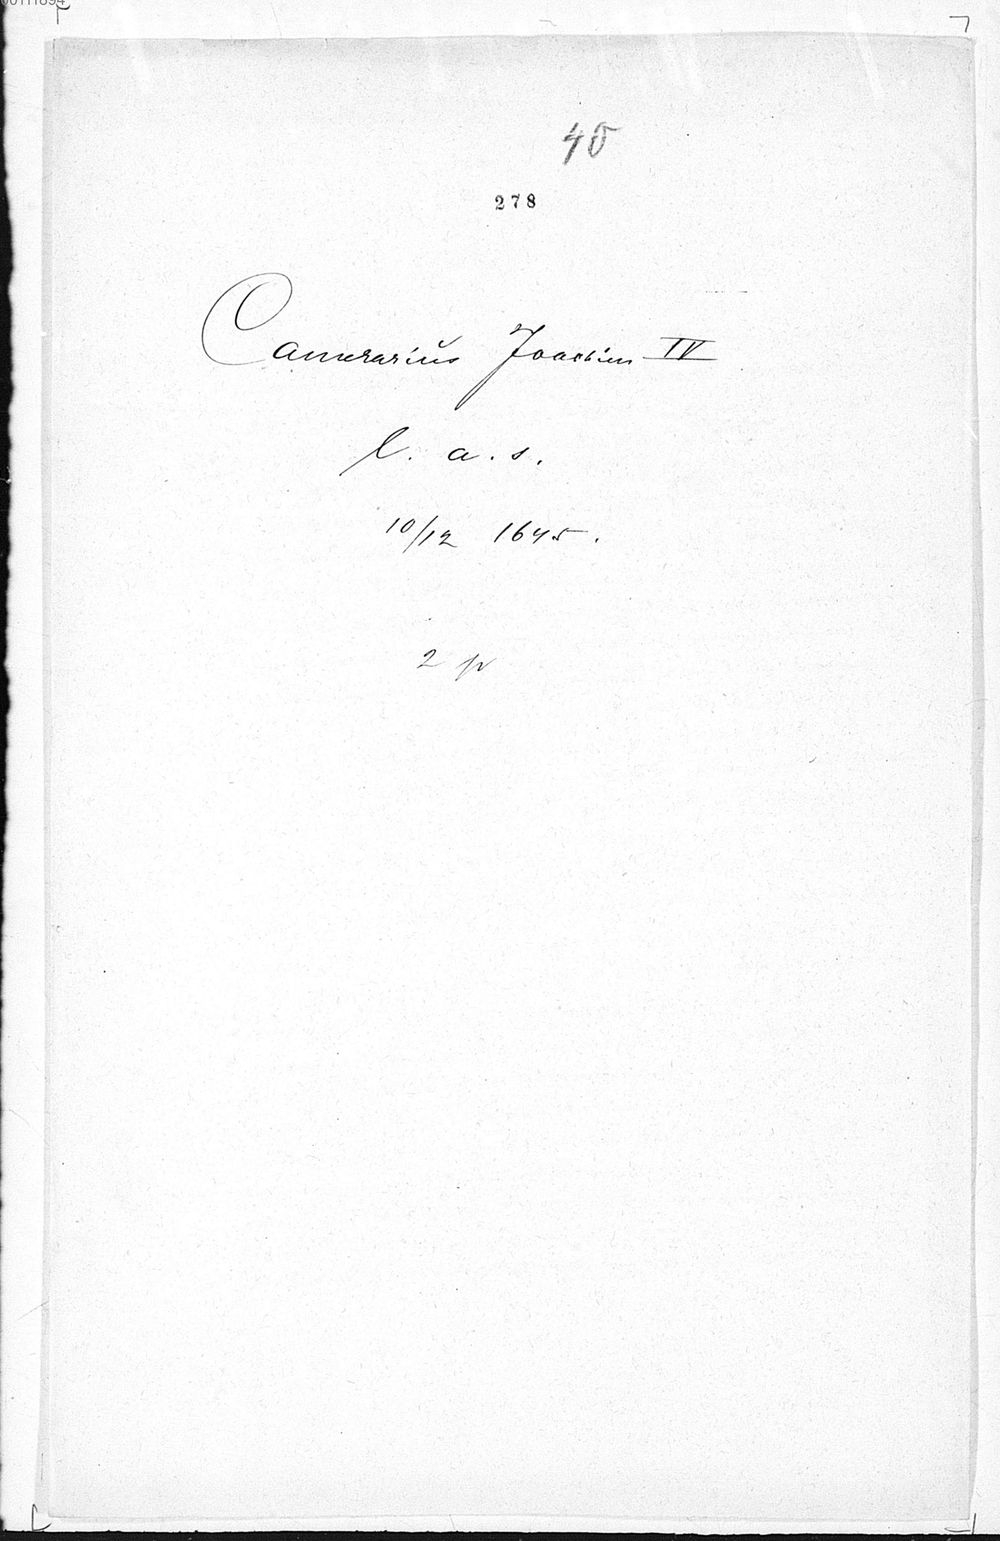 40
278
Camerarius Joachim IV
l. a. s.
10/12 1645.
2 p